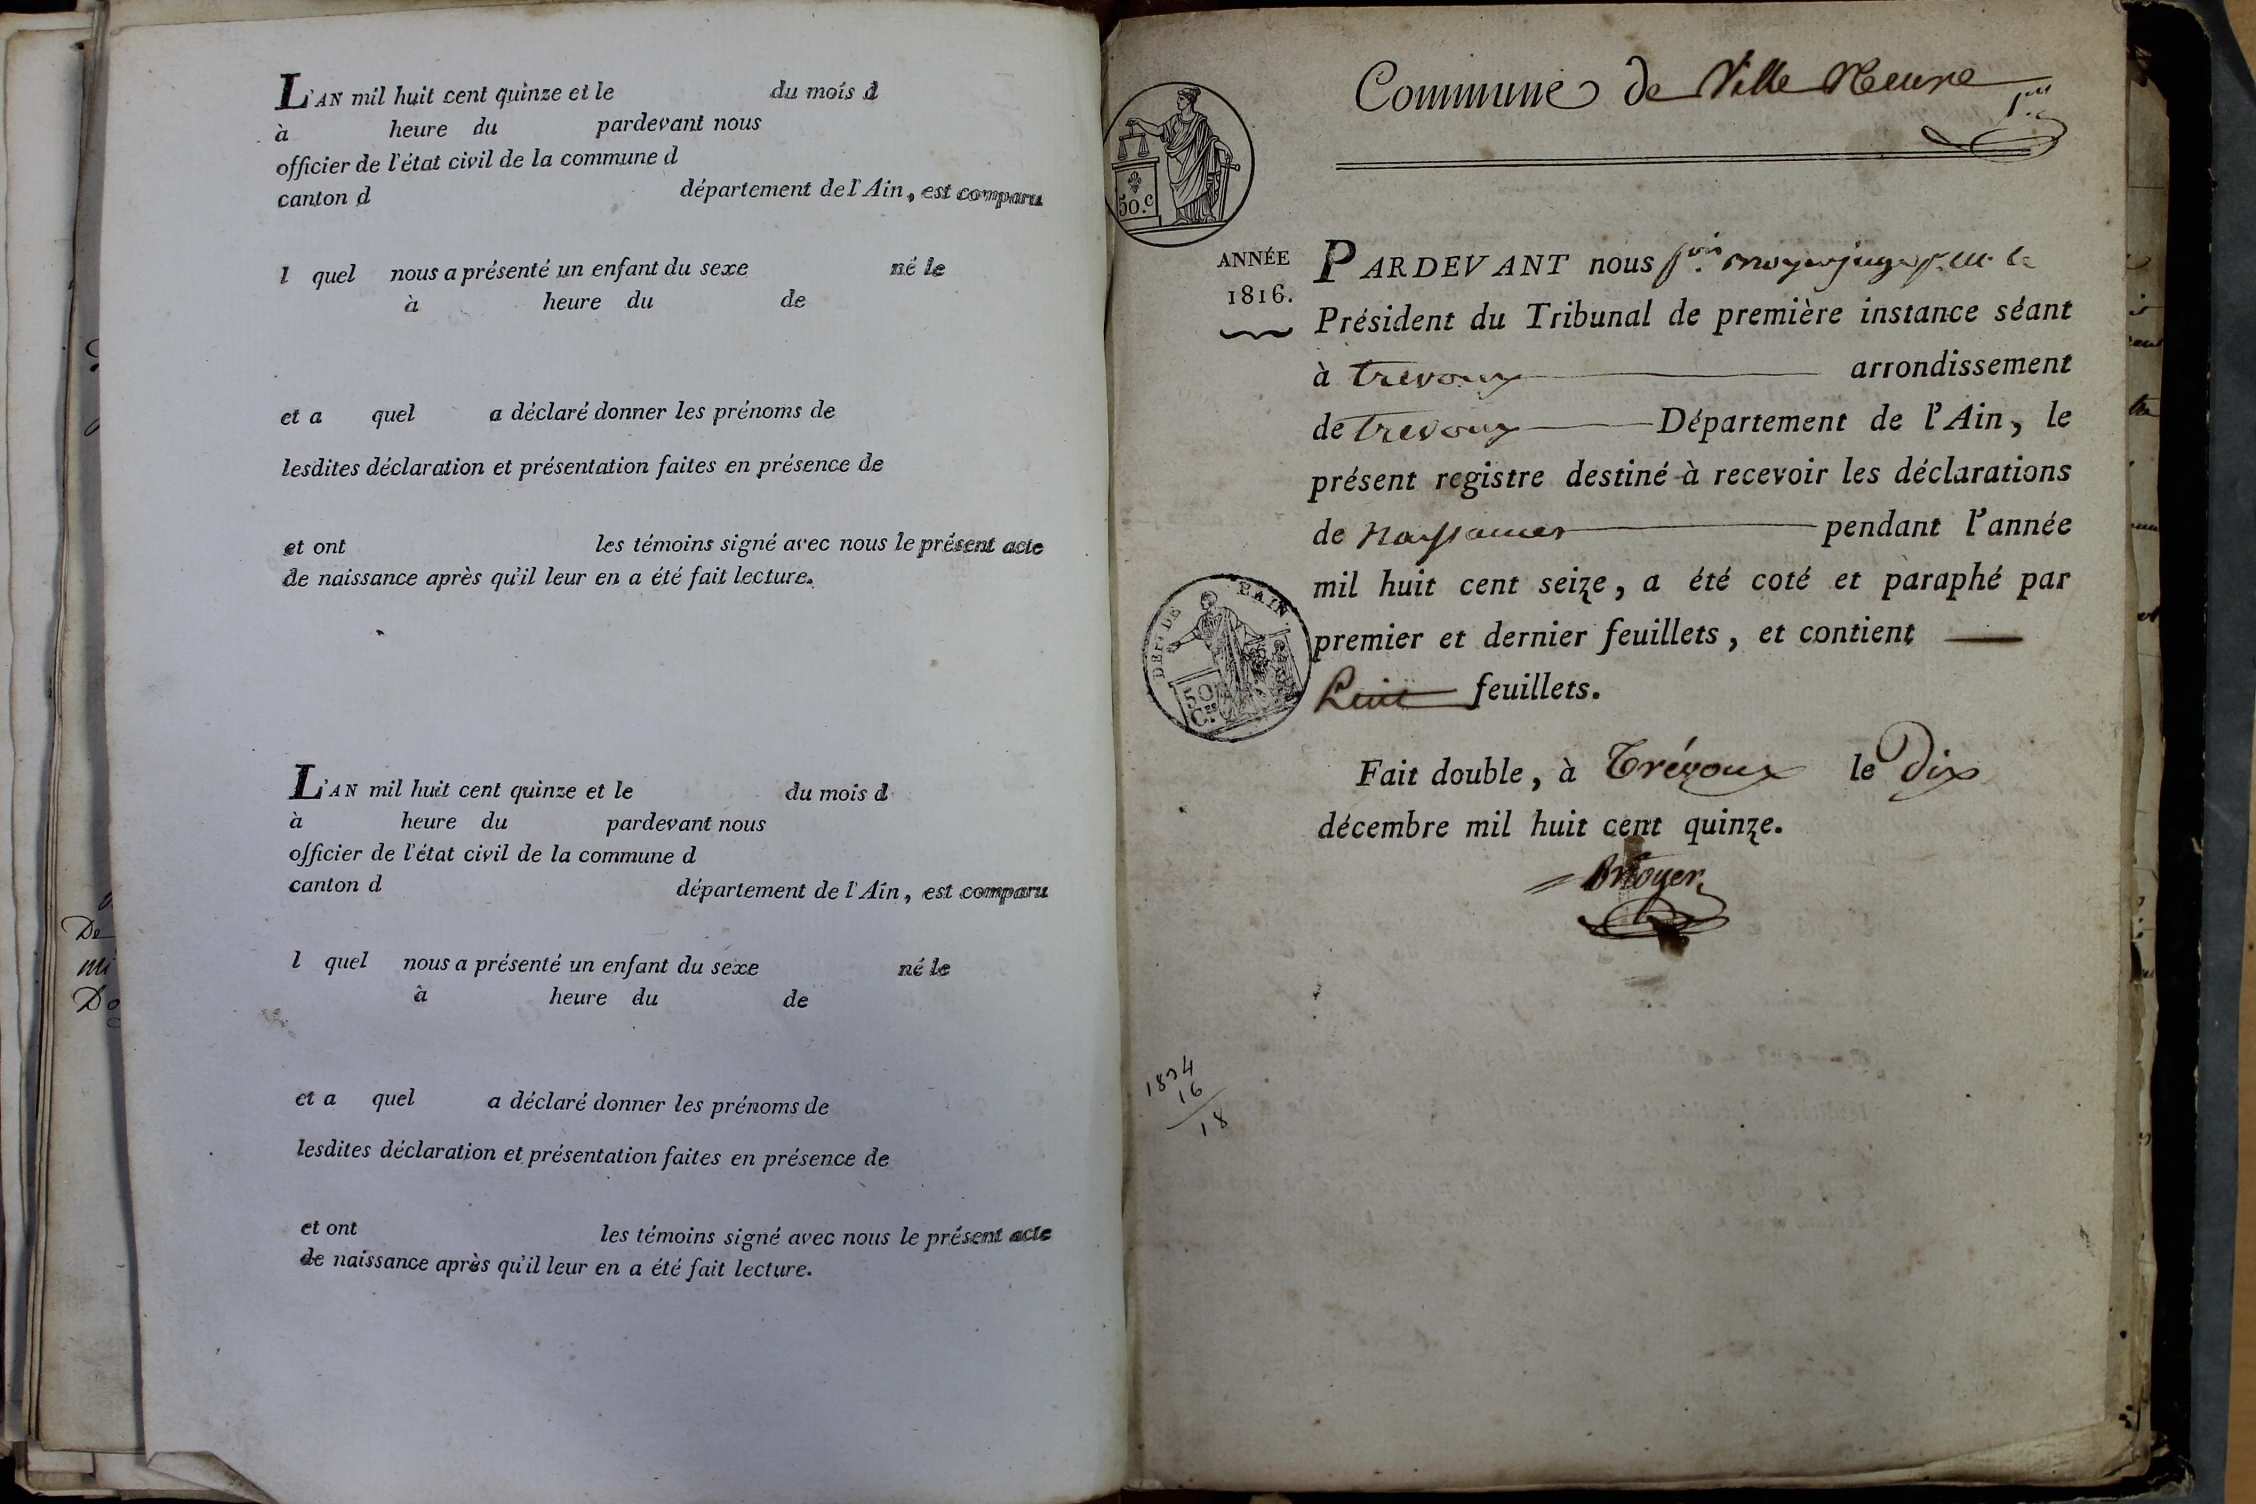 L'AN mil huit cent quinze et le du mois d
à heure du pardevant nous
officier de l'état civil de la commune d
canton d département de l'Ain, est comparu
l quel nous a présenté un enfant du sexe né le
à heure du de
et a quel a déclaré donner les prénoms de
lesdites déclaration et présentation faites en présence de
et ont les témoins signé avec nous le présent acte
de naissance après qu'il leur en a été fait lecture.
L'AN mil huit cent quinze et le du mois d
à heure du pardevant nous
officier de l'état civil de la commune d
canton d département de l'Ain, est comparu
l quel nous a présenté un enfant du sexe né le
à heure du de
et a quel a déclaré donner les prénoms de
lesdites déclaration et présentation faites en présence de
et ont les témoins signé avec nous le présent acte
de naissance après qu'il leur en a été fait lecture.
De
mi
Commune de Ville Neuve
50.c
ANNÉE
1816.
PARDEVANT nous
Président du Tribunal de première instance séant
à Trevoux arrondissement
de Trevoux Département de l'Ain, le
présent registre destiné à recevoir les déclarations
de Naissances pendant l'année
mil huit cent seize, a été coté et paraphé par
premier et dernier feuillets, et contient
huit feuillets.
DEP. DE L'AIN.
50
C.es
Fait double, à Trévoux le Dix
décembre mil huit cent quinze.
1834
16
18